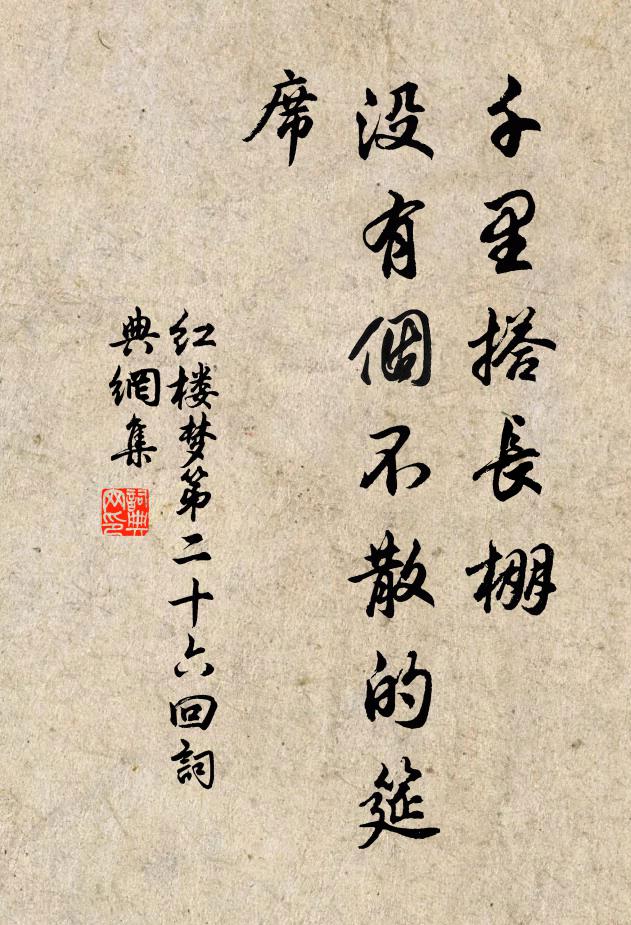 千里搭長棚
没有個不散的筵
席
红楼梦第二十六回詞
典網集
詞典
网印